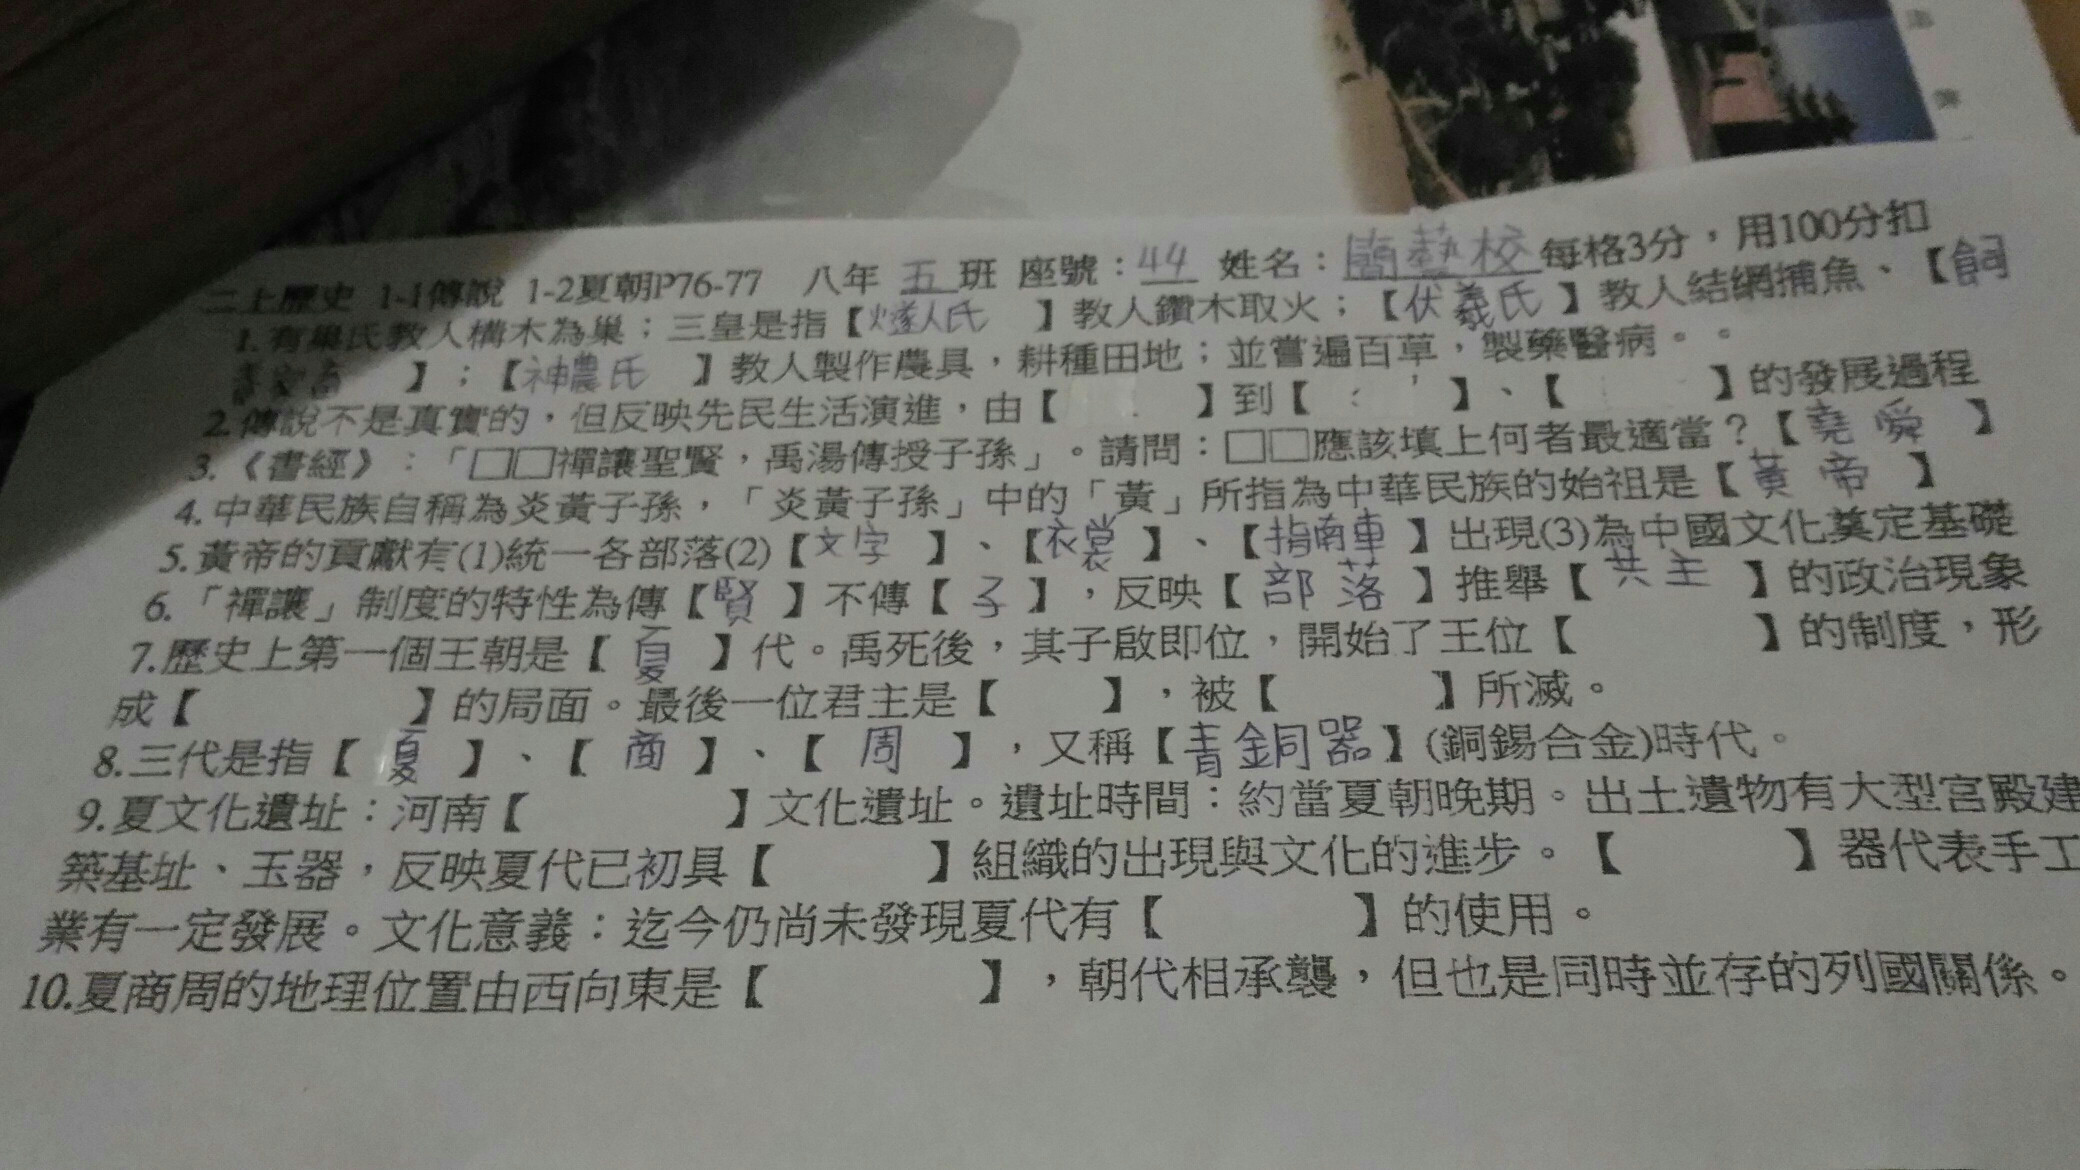 二上歷史 1-1傳說 1-2夏朝P76-77 八年 五 班 座號：44 姓名：簡藝校 每格3分，用100分扣
1. 有巢氏教人構木為巢；三皇是指【燧人氏 】教人鑽木取火；【伏羲氏 】教人結網捕魚、【飼
養家畜 】；【神農氏 】教人製作農具，耕種田地；並嘗遍百草，製藥醫病。。
2.傳說不是真實的，但反映先民生活演進，由【 】到【 】、【 】的發展過程
3.《書經》：「□□禪讓聖賢，禹湯傳授子孫」。請問：□□應該填上何者最適當？【堯 舜 】
4.中華民族自稱為炎黃子孫，「炎黃子孫」中的「黃」所指為中華民族的始祖是【黃 帝 】
5.黃帝的貢獻有(1)統一各部落(2)【文字 】、【衣裳 】、【指南車 】出現(3)為中國文化奠定基礎
6.「禪讓」制度的特性為傳【賢 】不傳【 子 】，反映【 部 落 】推舉【 共 主 】的政治現象
7.歷史上第一個王朝是【 夏 】代。禹死後，其子啟即位，開始了王位【 】的制度，形
成【 】的局面。最後一位君主是【 】，被【 】所滅。
8.三代是指【 夏 】、【 商 】、【 周 】，又稱【青銅器】(銅錫合金)時代。
9.夏文化遺址：河南【 】文化遺址。遺址時間：約當夏朝晚期。出土遺物有大型宮殿建
築基址、玉器，反映夏代已初具【 】組織的出現與文化的進步。【 】器代表手工
業有一定發展。文化意義：迄今仍尚未發現夏代有【 】的使用。
10.夏商周的地理位置由西向東是【 】，朝代相承襲，但也是同時並存的列國關係。